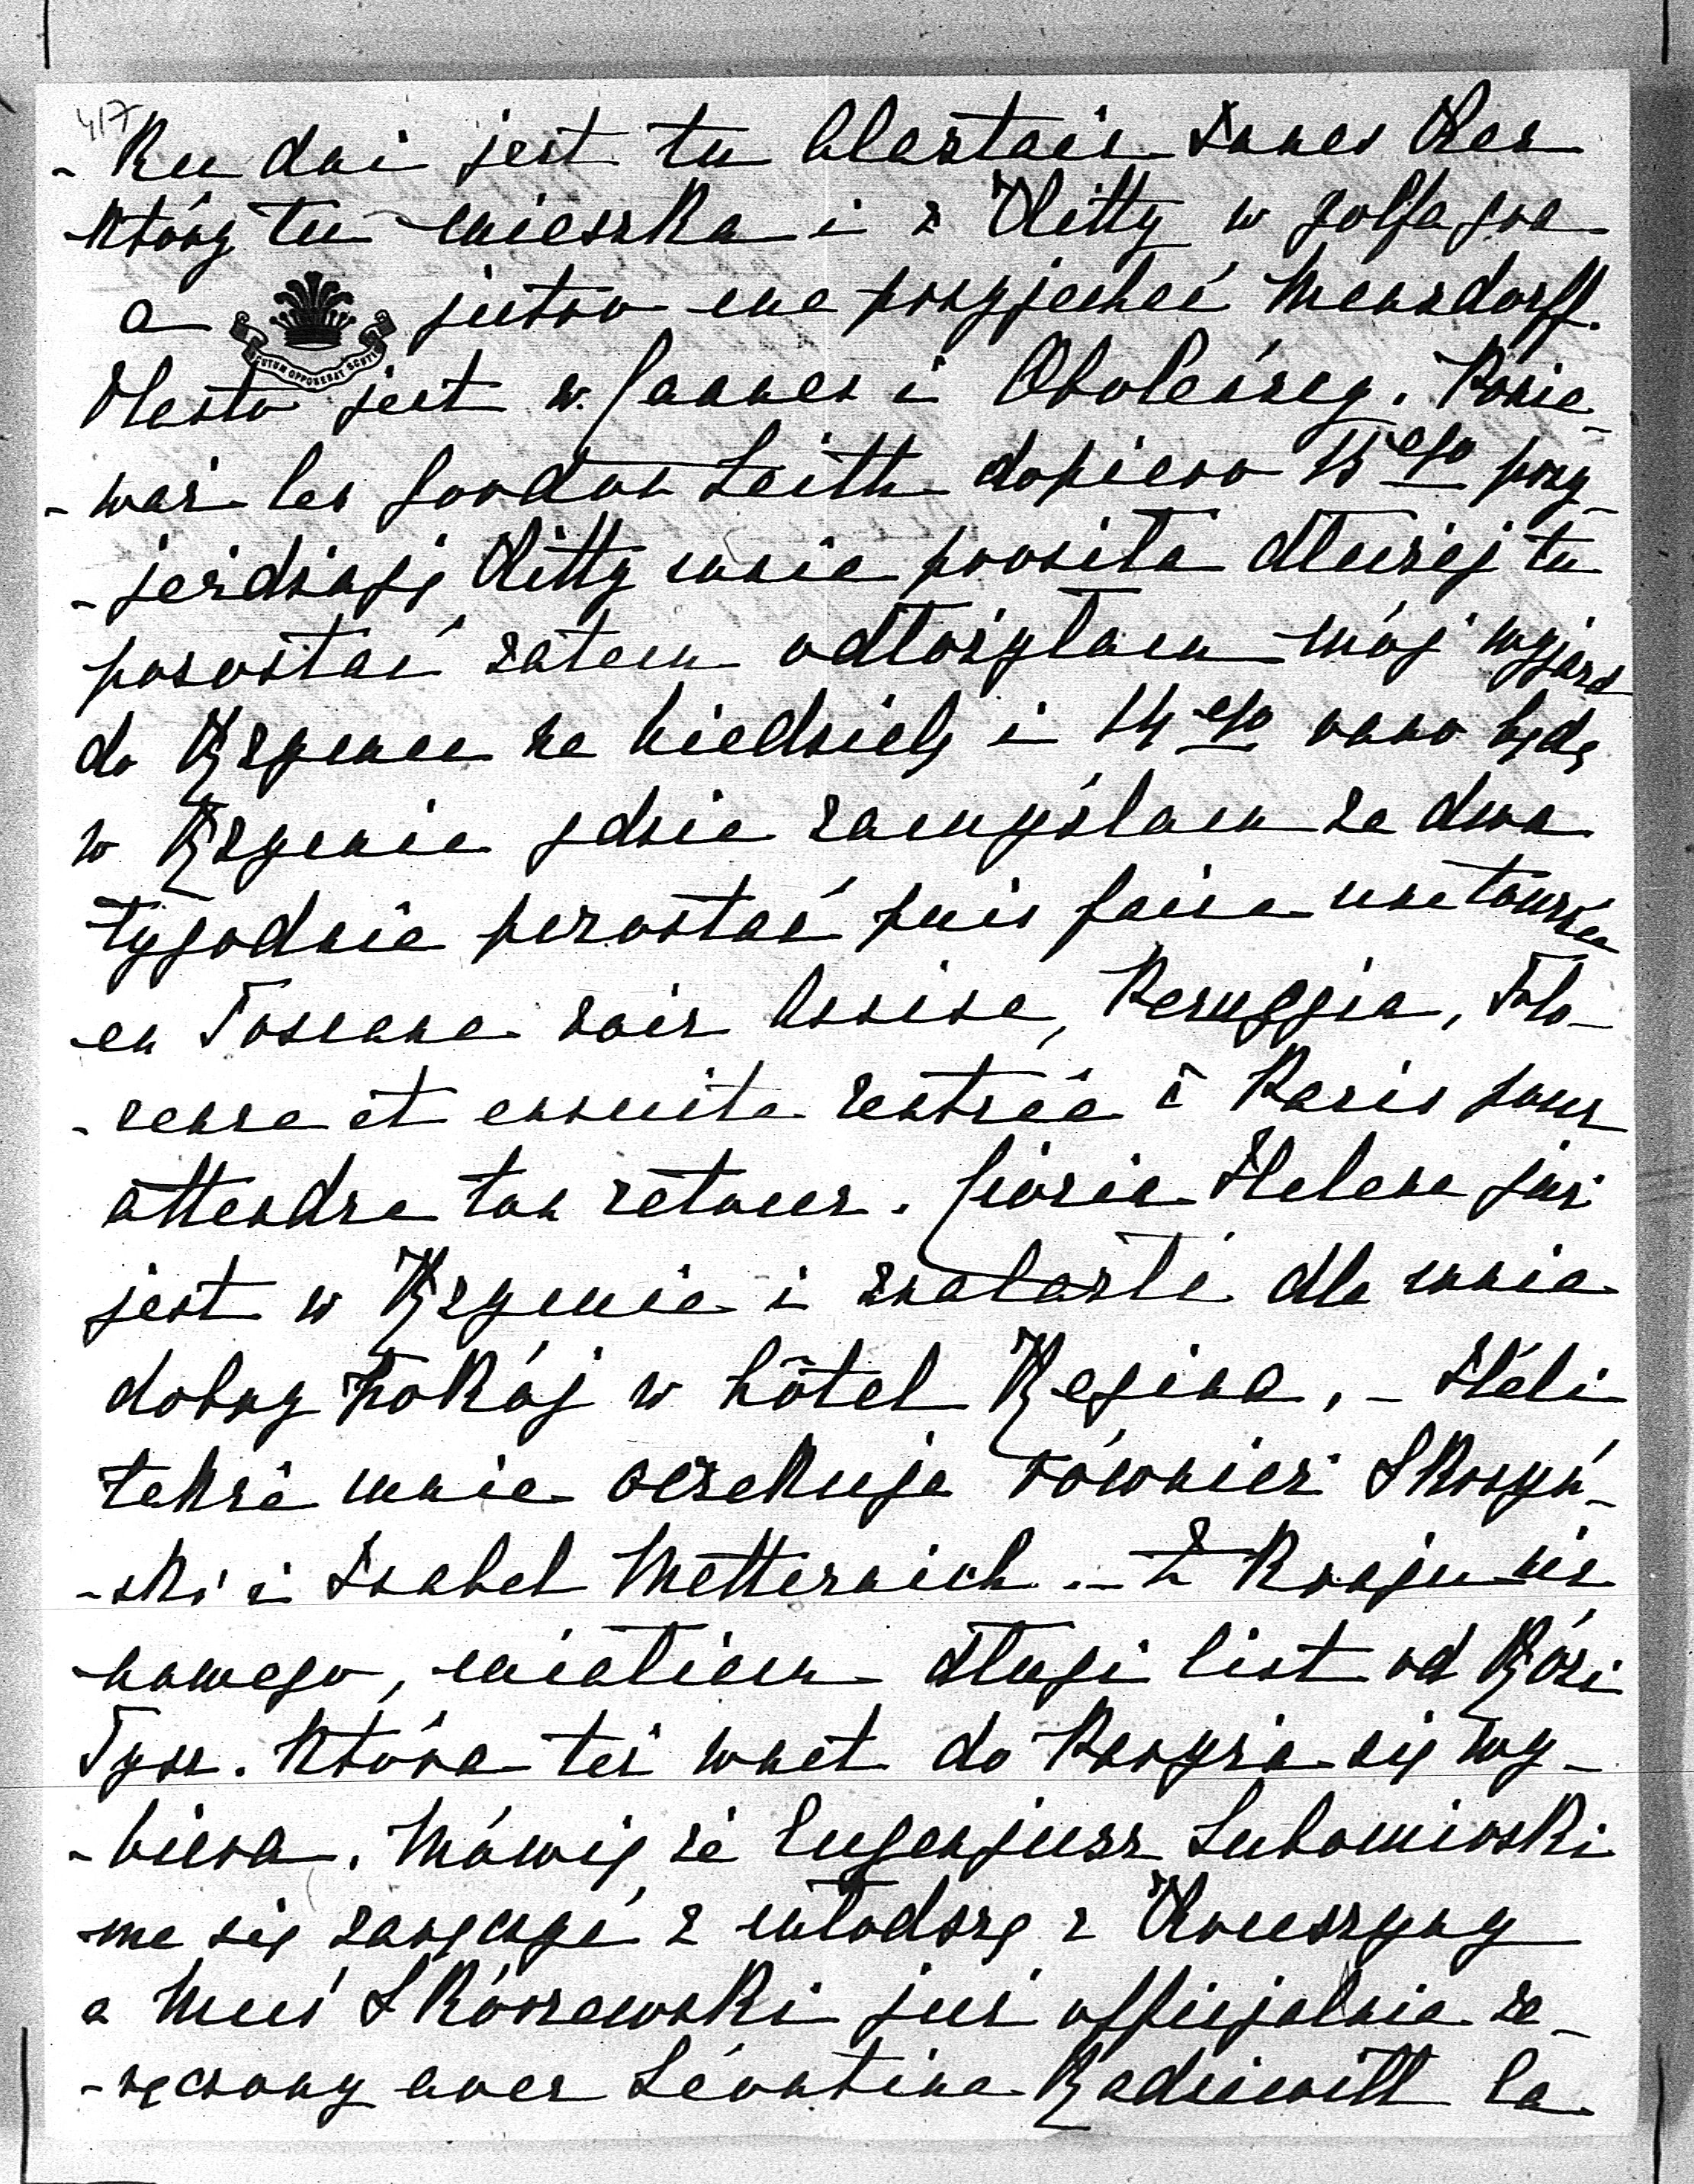 417
- Ku dni jest tu Alastair Innes Ker
który tu mieszka i z Kitty w golfa gra
a jutro ma przyjechać Mensdorff.
SCUTUM OPPONEBAT SCUTIS
Hesto jest w Cannes i Oboleńscy. Ponie-
- waż les Gordon Leith dopiero 15ego przy-
- jeżdżają Kitty mnie prosiła dłużej tu
pozostać zatem odłożyłam mój wyjazd
do Rzymu na Niedzielę i 14ego rano będę
w Rzymie gdzie zamyślam ze dwa
tygodnie pozostać puis faire une tournée
en Toscane voir Assise, Peruggia, Flo-
- rence et ensuite rentrée à Paris pour
attendre ton retour. Ciocia Helena już
jest w Rzymie i znalazła dla mnie
dobry pokój w hôtel Regina, - Héli
także mnie oczekuje również Skrzyń-
- ski i Isabel Metternich. - Z Kraju nic
nowego, miałam długi list od Rózi
Tysz. która też wnet do Paryża się wy-
- biera. Mówią że Eugenjusz Lubomirski
ma się zaręczyć z młodszą z Kruszyny
a Muś Skórzewski już officjalnie za-
- ręczony avec Léontine Radziwiłł la